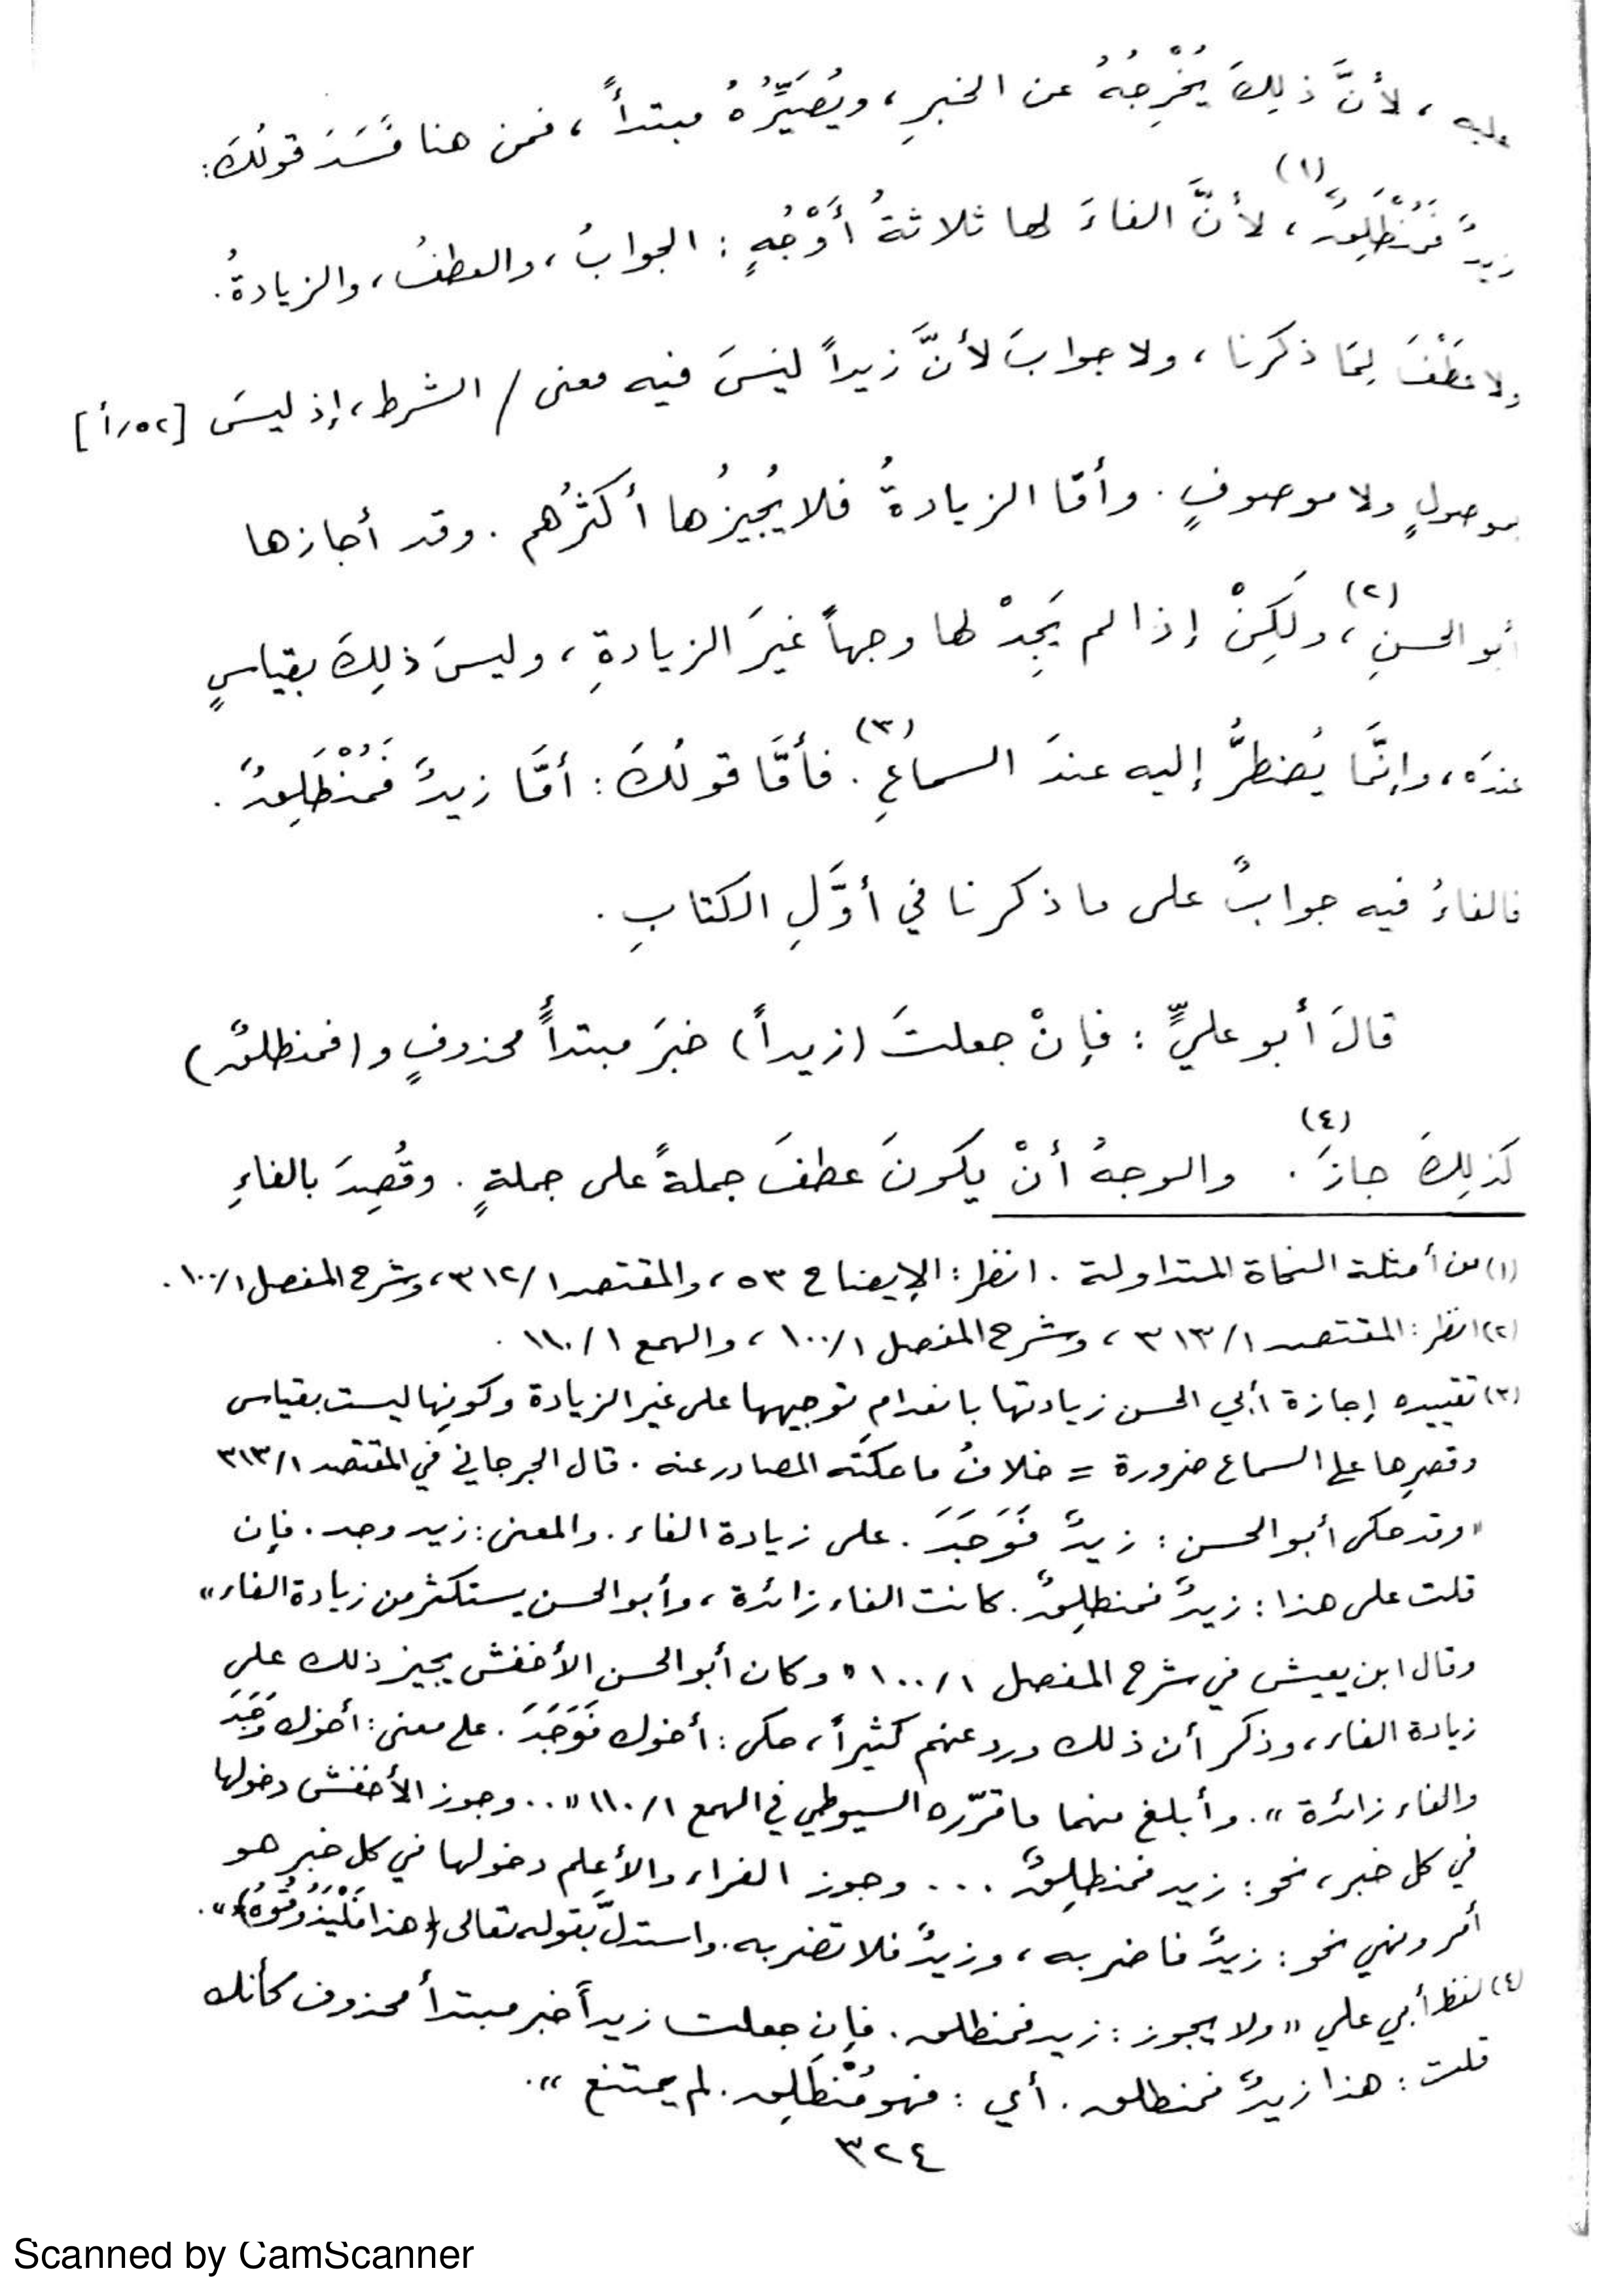 عليه ، لأنَّ ذلِكَ يُخْرِجُهُ عن الخبرِ ، ويُصَيِّرُهُ مبتدأً ، فمن هنا فَسَدَ قولُكَ :
زيدٌ فَمُنْطَلِقٌ (١) ، لأنَّ الفاءَ لها ثلاثةُ أَوْجُهٍ : الجوابُ ، والعطفُ ، والزيادةُ .
ولا عَطْفَ لِمَا ذكرنا ، ولا جوابَ لأنَّ زيداً ليسَ فيه معنى / الشرط ، إذ ليسَ [٥٢/أ]
بموصولٍ ولا موصوفٍ . وأمّا الزيادةُ فلا يُجيزُها أكثرُهم . وقد أجازها
أبو الحسنِ (٢) ، ولَكِنْ إذا لم يَجِدْ لها وجهاً غيرَ الزيادةِ ، وليسَ ذلِكَ بقياسٍ
عندَه ، وإنَّما يُضطرُّ إليه عندَ السماعِ (٣) . فأمَّا قولُكَ : أمَّا زيدٌ فَمُنْطَلِقٌ .
فالفاءُ فيه جوابٌ على ما ذكرنا في أوَّلِ الكتابِ .
قالَ أبو عليٍّ : فإنْ جعلتَ (زيداً) خبرَ مبتدأٍ محذوفٍ و (فمنطلقٌ)
كذلِكَ جازَ (٤) . والوجهُ أنْ يكونَ عطفَ جملةً على جملةٍ . وقُصِدَ بالفاءِ
(١) من أمثلة النحاة المتداولة . انظر : الإيضاح ٥٣ ، والمقتصد ١/٣١٢ ، وشرح المفصل ١/١٠٠ .
(٢) انظر : المقتصد ١/٣١٣ ، وشرح المفصل ١/١٠٠ ، والهمع ١/١١٠ .
(٣) تقييده إجازة أبي الحسن زيادتها بانعدامِ توجيهها على غير الزيادة وكونِها ليست بقياس
وقصرِها على السماع ضرورة = خلافُ ما حكتْه المصادر عنه . قال الجرجاني في المقتصد ١/٣١٣
" وقد حكى أبو الحسن : زيدٌ فَوَجَدَ . على زيادة الفاء . والمعنى : زيد وجد . فإن
قلت على هذا : زيدٌ فمنطلِقٌ . كانت الفاء زائدة ، وأبو الحسن يستكثر من زيادة الفاء "
وقال ابن يعيش في شرح المفصل ١/١٠٠ " وكان أبو الحسن الأخفش يجيز ذلك على
زيادة الفاء ، وذكر أن ذلك ورد عنهم كثيراً ، حكى : أخوك فَوَجَدَ . على معنى : أخوك وَجَدَ
والفاء زائدة " . وأبلغ منهما ما قرّره السيوطي في الهمع ١/١١٠ " .. وجوز الأخفش دخولها
في كل خبر ، نحو : زيد فمنطلِقٌ ... وجوز الفراء والأعلم دخولها في كل خبر هو
أمر ونهي نحو : زيدٌ فاضربه ، وزيدٌ فلا تضربه . واستدلَّ بقوله تعالى ﴿هذا فَلْيَذُوقُوهُ﴾ " .
(٤) لفظ أبي علي " ولا يجوز : زيد فمنطلق . فإن جعلت زيداً خبر مبتدأ محذوف كأنك
قلت : هذا زيدٌ فمنطلق . أي : فهو مُنْطَلِق . لم يمتنع " .
٣٢٤
Scanned by CamScanner